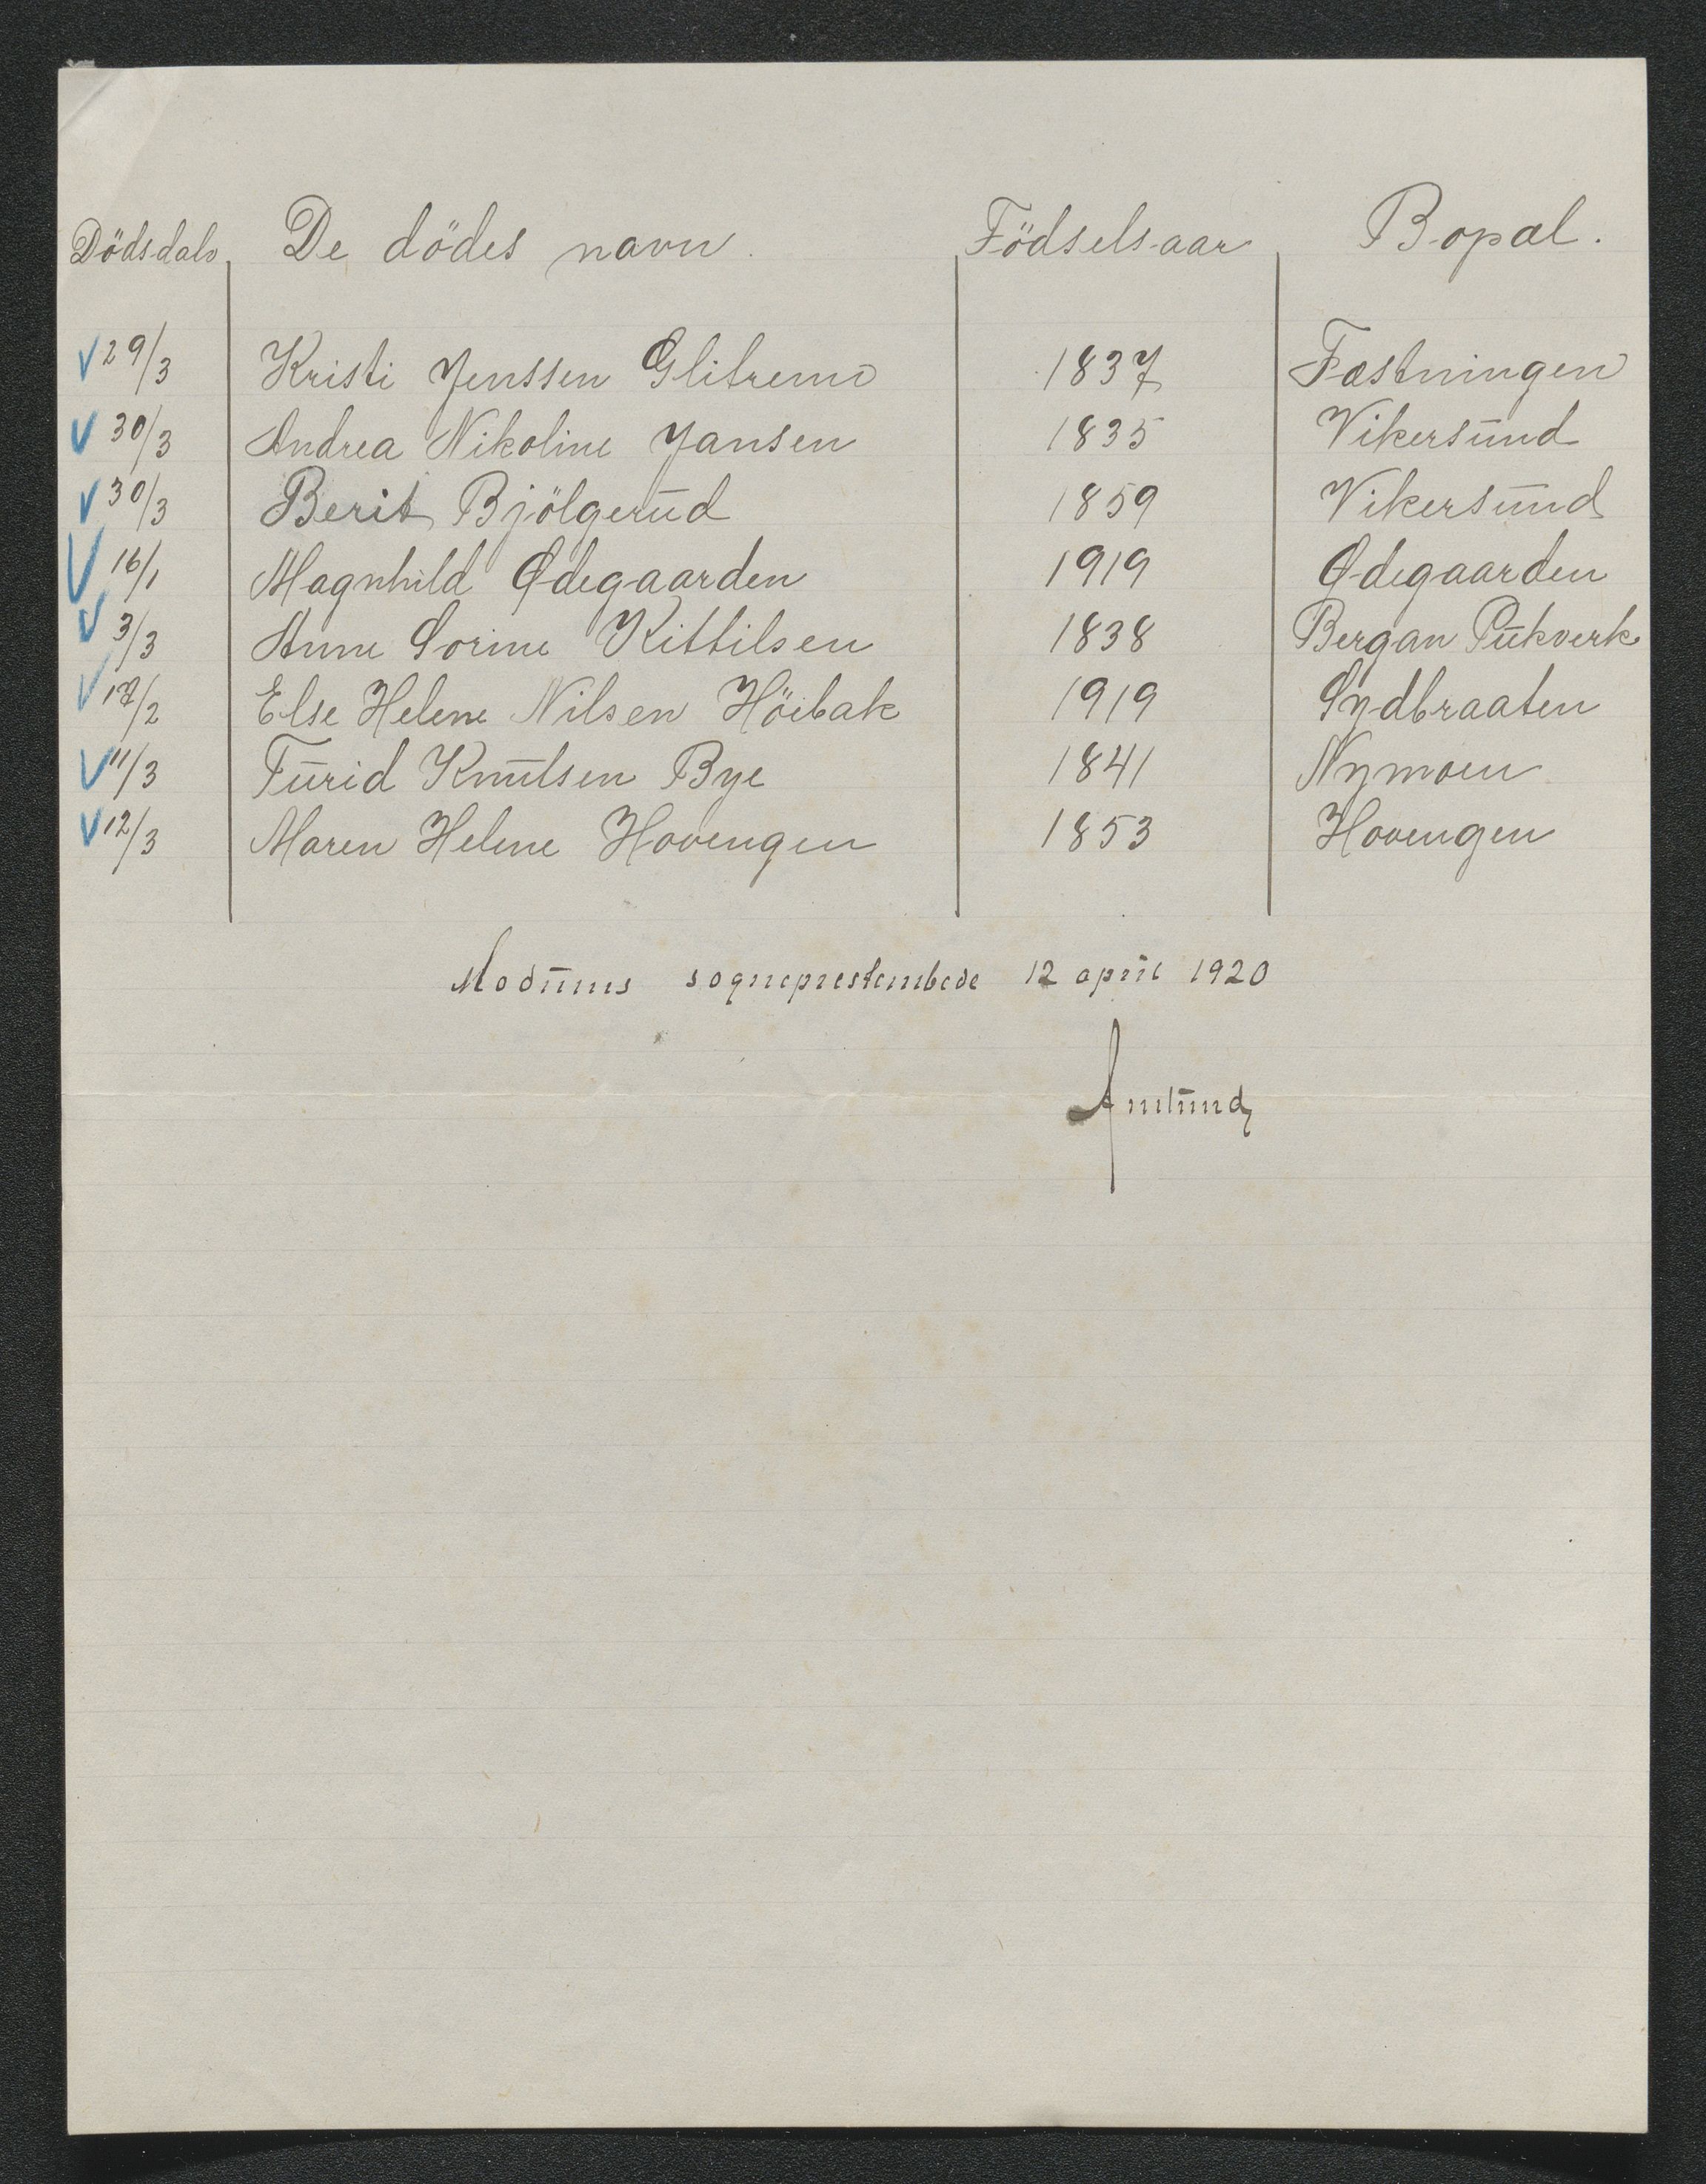 Dödsdato De dödes navn. Födselsaar Bopæl.
29/3 Kristi Jenssen Glitremo 1837 Fæstningen
30/3 Andrea Nikoline Jansen 1835 Vikersund
30/3 Berit Bjölgerud 1859 Vikersund
16/1 Magnhild Ødegaarden 1919 Ødegaarden
3/3 Anne Sorine Kittilsen 1838 Bergan Pukverk
/2 Else Helene Nilsen Höibak 1919 Sydbraaten
11/3 Turid Knutsen Bye 1841 Nymoen
12/3 Maren Helene Hovengen 1853 Hovengen
Modums sogneprestembede 12 april 1920